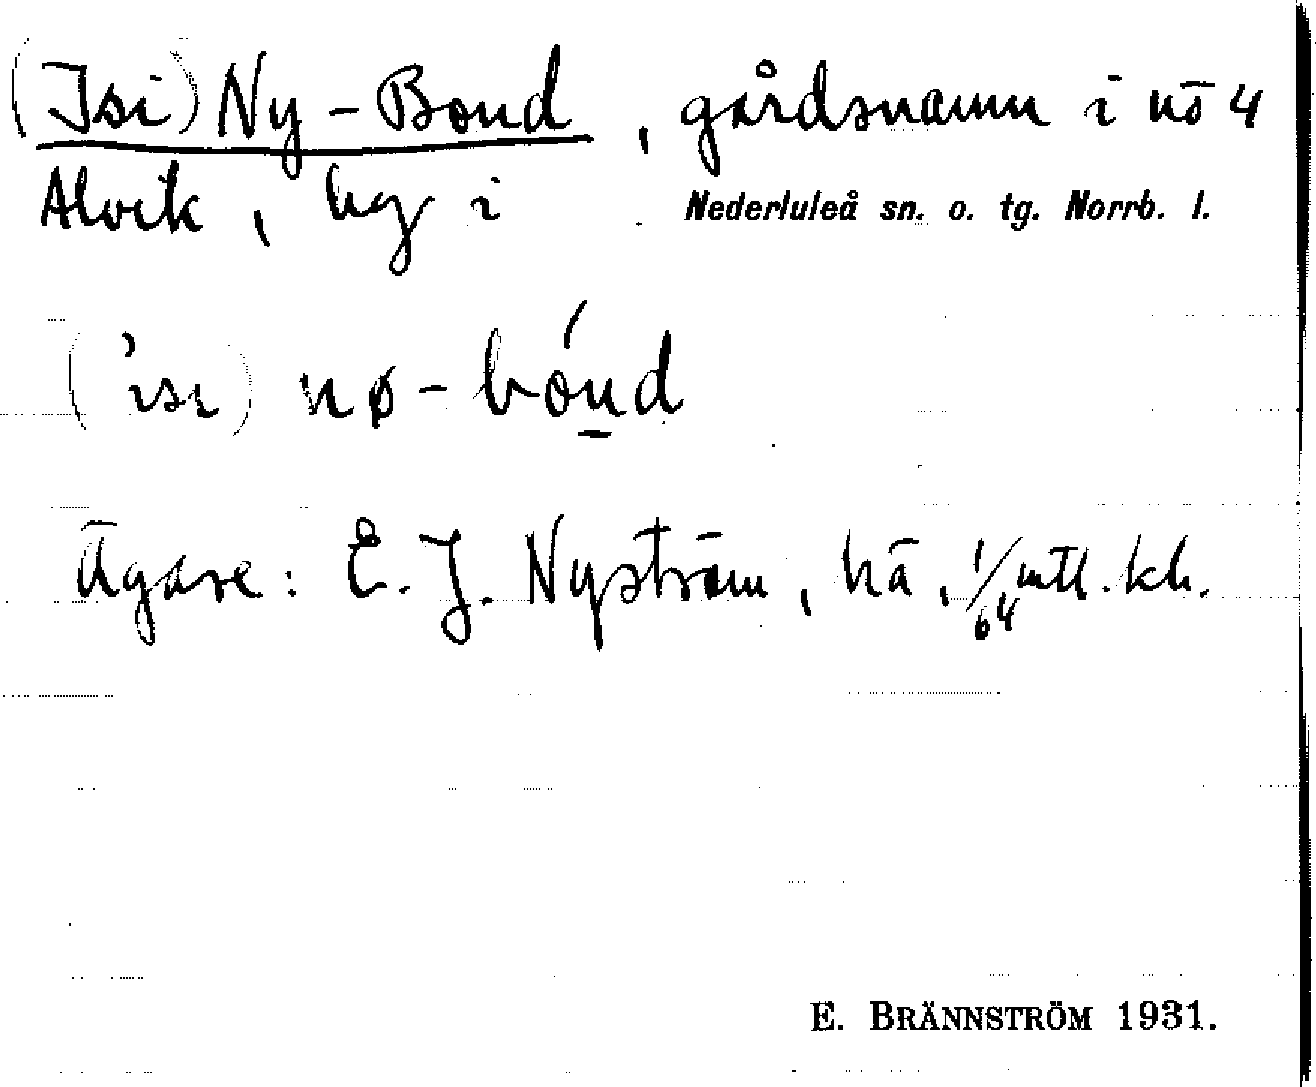 (Isi) Ny-Bond, gårdsnamn i nō 4
Alvik, by i Nederluleå sn. o. tg. Norrb. l.
('isi) nø-bónd
Ägare: E. J. Nyström, hä, 1/64 mtl. kh.
E. BRÄNNSTRÖM 1931.